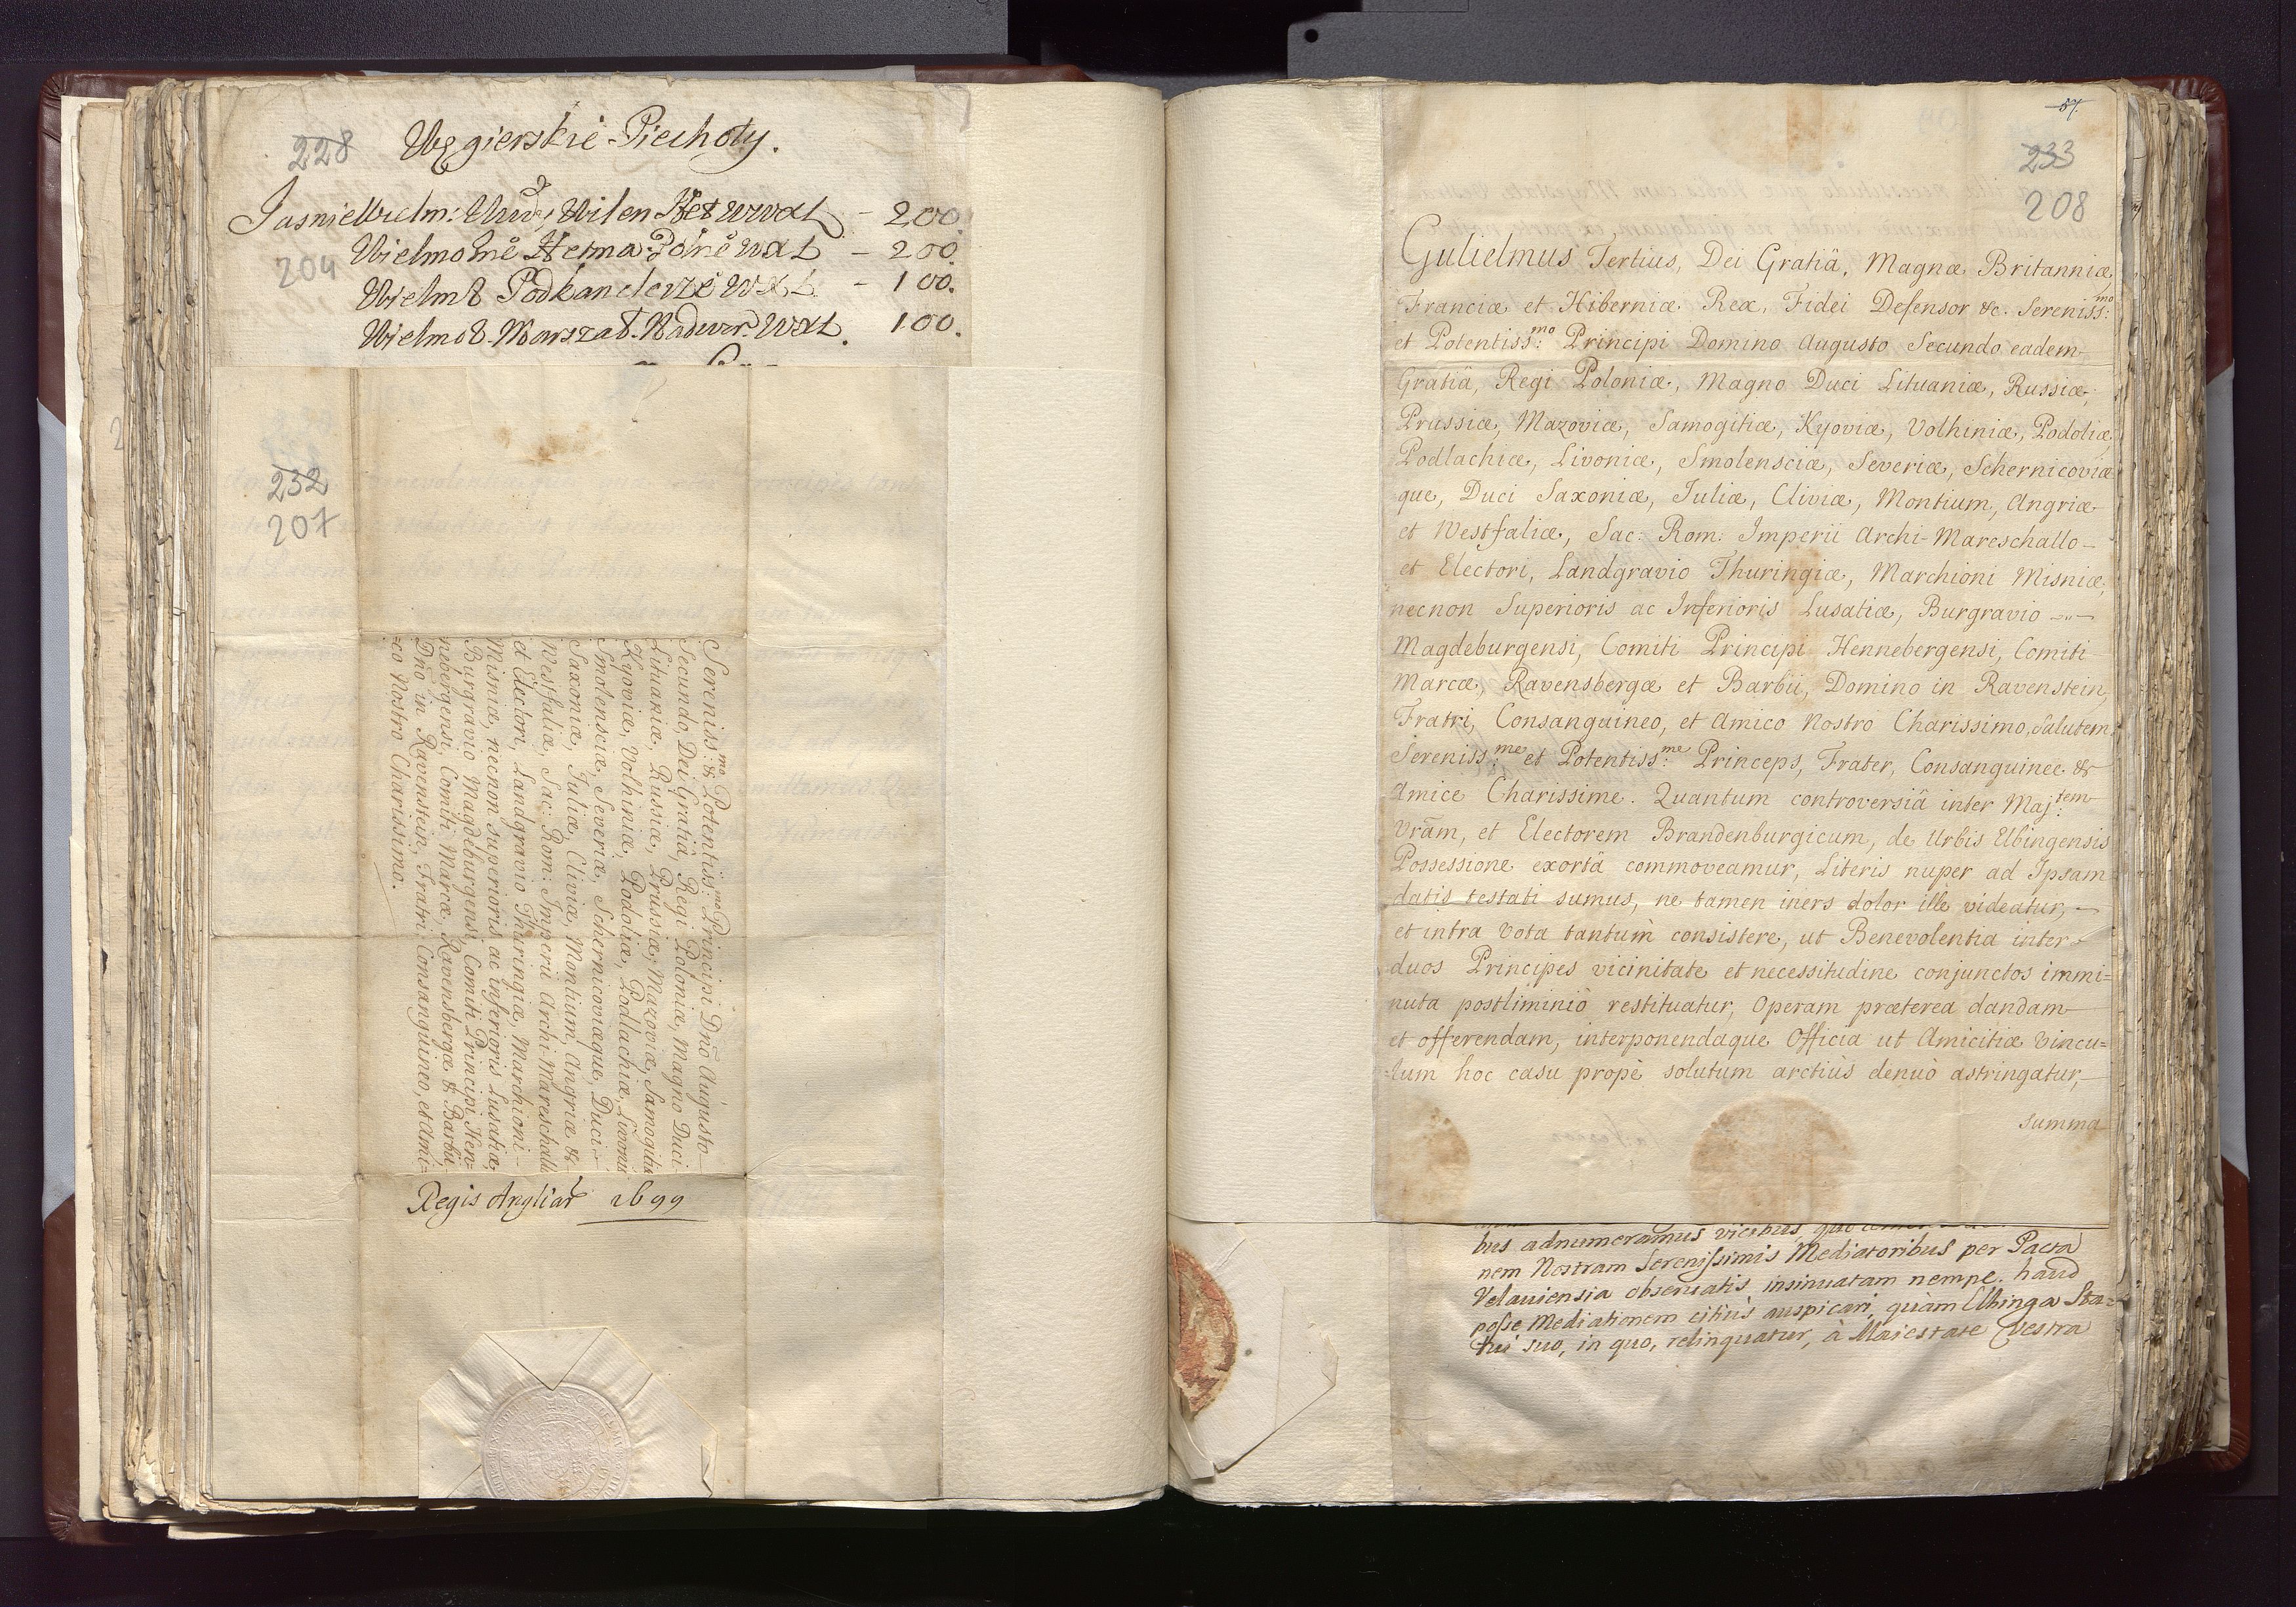 228
Węgierskie Piechoty.
Wilen Het WXL – 200.
204
Wielmo Hetma Polne WXL – 200.
Wielmo Podkanclerze WXL – 100.
Wielmo Marszał. Nadwor. WXL. 100.
232
207
Sereniss:mo & Potentiss:mo Principi Dño Augusto
Secundo, Dei Gratiâ, Regi Poloniæ, Magno Duci
Lituaniæ, Russiæ, Prussiæ, Mazoviæ, Samogitiæ
Kyoviæ, Volhiniæ, Podoliæ, Podlachiæ, Livoniæ
Smolensciæ, Severiæ, Schernicoviæque, Duci
Saxoniæ, Juliæ, Cliviæ, Montium, Angriæ &
Westfaliæ, Sac: Rom: Imperii Archi-Mareschallo
et Electori, Landgravio Thuringiæ, Marchioni
Misniæ, necnon superioris ac inferioris Lusatiæ,
Burgravio Magdeburgensi, Comiti Principi Hen=
nebergensi, Comiti Marcæ, Ravensbergæ & Barbii,
Dño in Ravenstein, Fratri Consanguineo, et Ami=
=co Nostro Charissimo.
Regis Angliæ 1699
57.
233
208
Gulielmus Tertius, Dei Gratiâ, Magnæ Britanniæ
Franciæ et Hiberniæ Rex, Fidei Defensor &c. Sereniss:mo
et Potentiss:mo Principi Domino Augusto Secundo eadem
Gratiâ, Regi Poloniæ, Magno Duci Lituaniæ, Russiæ,
Prussiæ, Mazoviæ, Samogitiæ, Kyoviæ, Volhiniæ, Podoliæ
Podlachiæ, Livoniæ, Smolensciæ, Severiæ, Schernicoviæ
que, Duci Saxoniæ, Juliæ, Cliviæ, Montium, Angriæ
et Westfaliæ, Sac: Rom: Imperii Archi-Mareschallo
et Electori, Landgravio Thuringiæ, Marchioni Misniæ,
necnon Superioris ac Inferioris Lusatiæ, Burgravio
Magdeburgensi, Comiti Principi Hennebergensi, Comiti
Marcæ, Ravensbergæ et Barbii, Domino in Ravenstein,
Fratri, Consanguineo, et Amico Nostro Charissimo, Salutem.
Sereniss:me et Potentiss:me Princeps, Frater, Consanguinee &
Amice Charissime. Quantum controversiâ inter Maj:tem
Vrãm, et Electorem Brandenburgicum, de Urbis Elbingensis
Possessione exortâ commoveamur, Literis nuper ad Ipsam
datis testati sumus, ne tamen iners dolor ille videatur,
et intra Vota tantùm consistere, ut Benevolentia inter
duos Principes vicinitate et necessitudine conjunctos immi=
nuta postliminiò restituatur, Operam præterea dandam
et offerendam, interponendaque Officia ut Amicitiæ Vincu=
lum hoc casu propè solutum arctiùs denuò astringatur,
summa
bus adnumeramus vicibus,
nem Nostram Serenissimis Mediatoribus per Pacta
Velaviensia observatis insinuatam nempe haud
posse Mediationem citiùs auspicari, quàm Elbinga Sta=
tui suo, in quo, relinquatur, à Maiestate Vestra